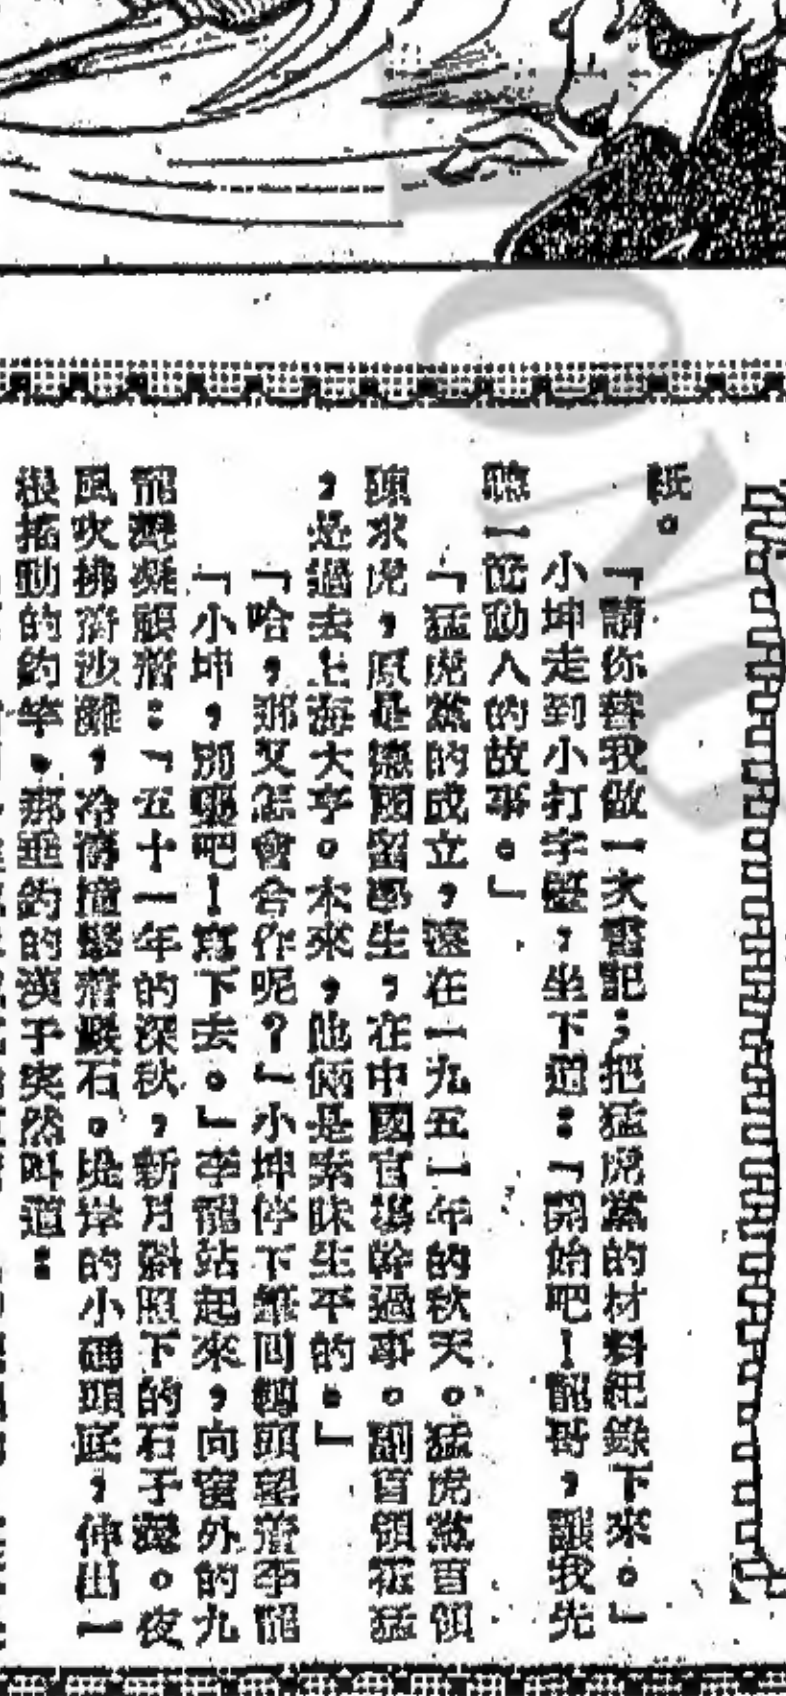 紙。
「請你替我做一次書記；把猛虎黨的材料紀錄下來。」
小坤走到小打字檯，坐下道：「開始吧！龍哥，讓我先
聽一節動人的故事。」
「猛虎黨的成立，遠在一九五一年的秋天。猛虎黨首領
陳求虎，原是德國留學生，在中國官場幹過事。副首領莊猛
，是過去上海大亨。本來，他倆是素昧生平的。」
「哈，那又怎會合作呢？」小坤停下鍵問轉頭望着李龍
「小坤，別嚷吧！寫下去。」李龍站起來，向窗外的九
龍灣凝視着：「五十一年的深秋，新月斜照下的石子灘。夜
風吹拂着沙灘，冷濤撞擊着礁石。堤岸的小碼頭底，伸出一
根搖動的釣竿，那垂釣的漢子突然叫道：